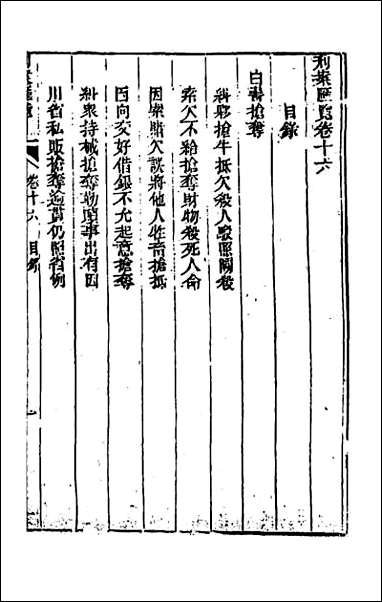 刑案匯覽卷十六
目錄
白晝搶奪
糾夥搶牛抵欠殺人駁照鬭殺
索欠不給搶奪財物殺死人命
因索賭欠誤將他人牲畜搶抵
因向交好借銀不允起意搶奪
糾眾持械搶奪物頭事出有因
川省私販搶奪逾貫仍照省例
卷十六 目錄 一